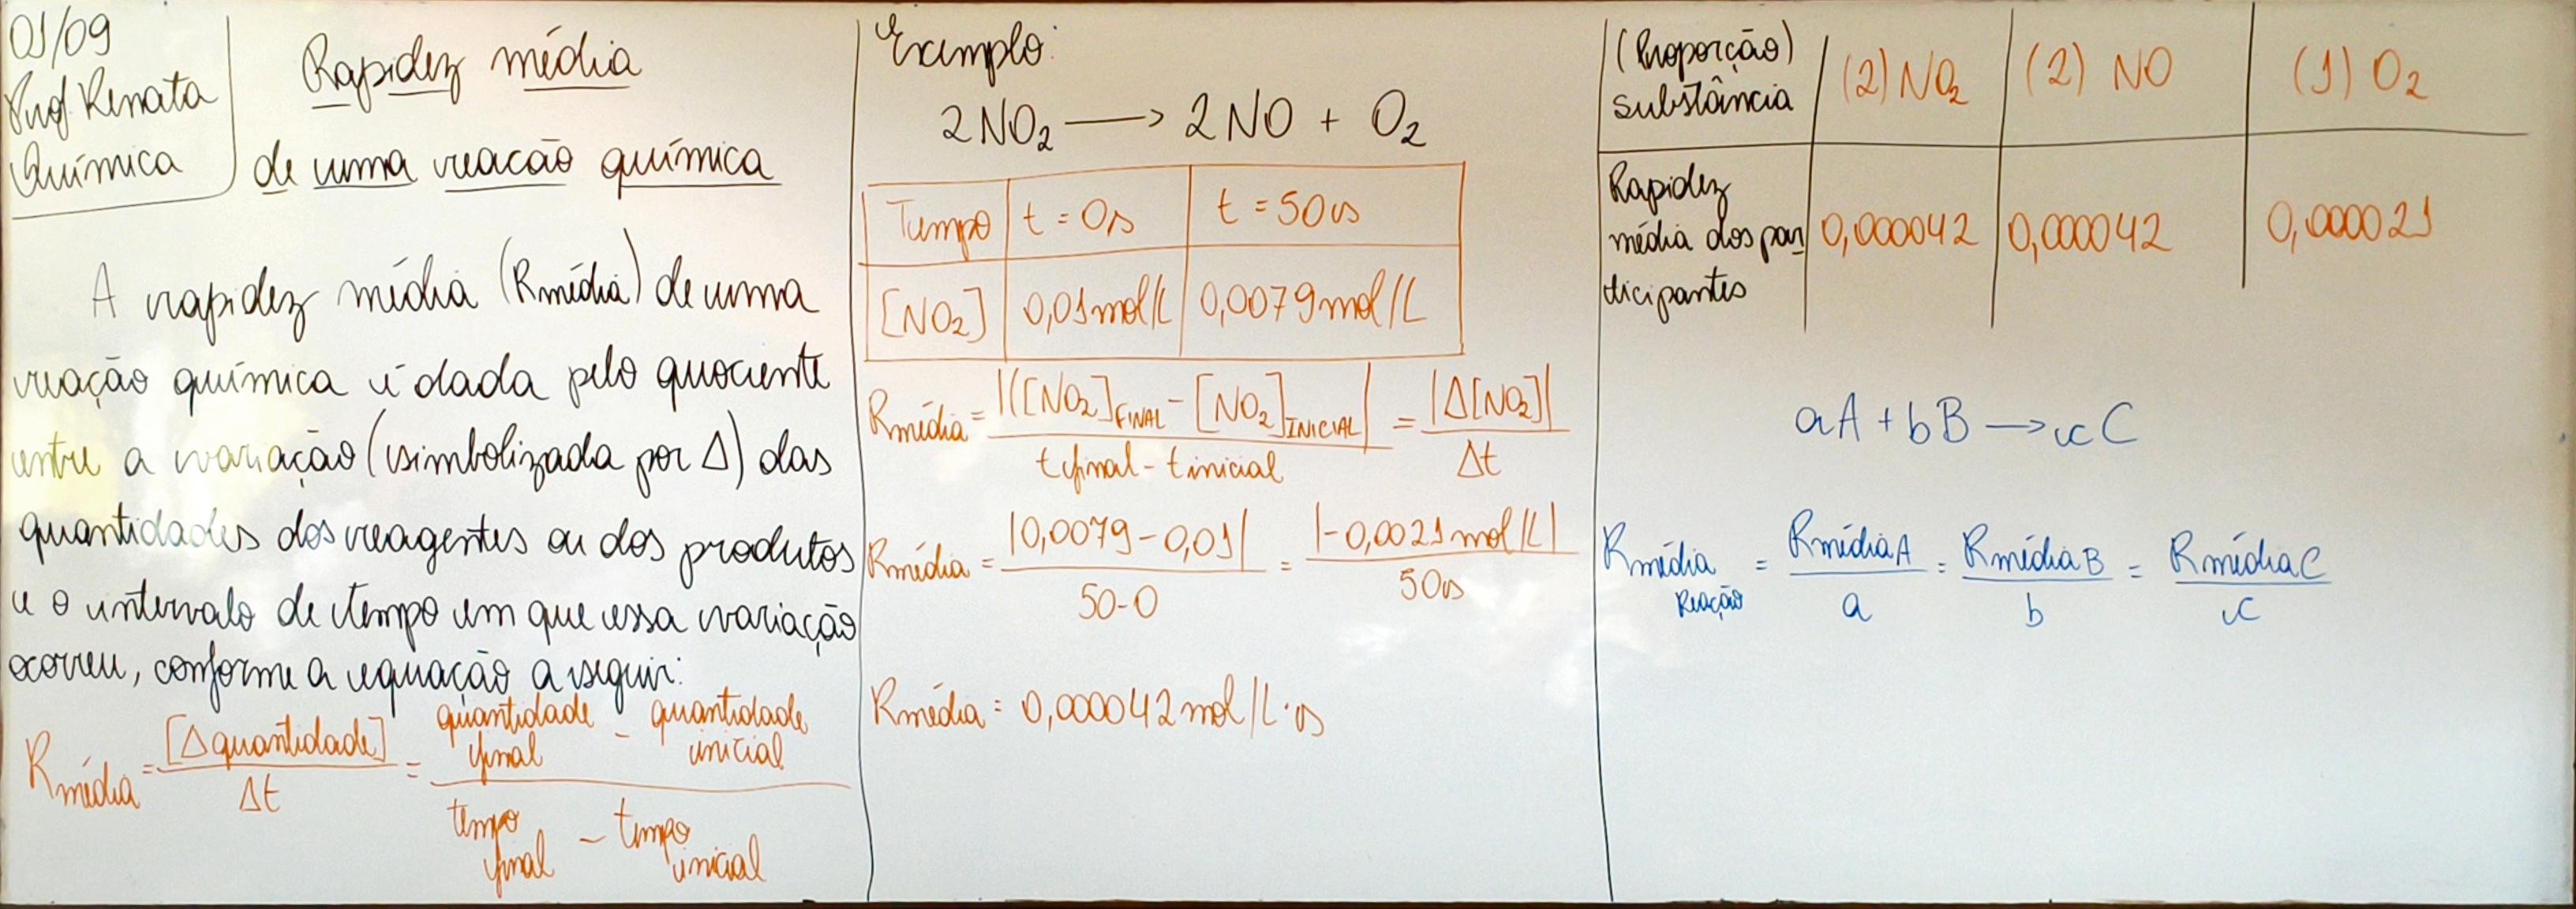 01/09
Prof Renata
Química
Rapidez média
de uma reacão química
A rapidez média (Rmédia) de uma
reação química é dada pelo quociente
entre a variação (simbolizada por Δ) das
quantidades dos reagentes ou dos produtos
e o intervalo de tempo em que essa variação
ocorreu, conforme a equação a seguir:
Rmédia = [Δquantidade] / Δt = quantidade final - quantidade inicial / tempo final - tempo inicial
Exemplo:
2NO₂ → 2NO + O₂
Tempo t = 0s t = 50s
[NO₂] 0,01mol/L 0,0079mol/L
Rmédia = |([NO₂]FINAL - [NO₂]INICIAL| / tfinal - tinicial = |Δ[NO₂]| / Δt
Rmédia = |0,0079 - 0,01| / 50-0 = |-0,0021mol/L| / 50s
Rmédia = 0,000042mol/L·s
(Proporção) substância (2) NO₂ (2) NO (1) O₂
Rapidez
média dos par
ticipantes
0,000042 0,000042 0,000021
aA + bB → cC
Rmédia Reação = RmédiaA / a = RmédiaB / b = RmédiaC / c